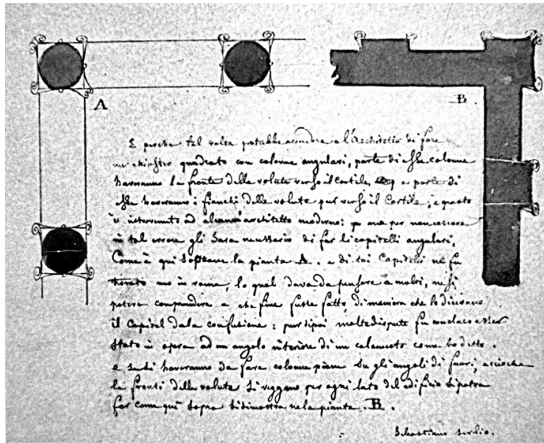 A B
E perche tal volta potrebbe a l'Architetto di fare
un chiostro quadrato con colonne angulari, parte di esse colonne
haveranno la fronte delle volute verso il cortile, e parte di
esse haveranno i fianchi delle volute pur verso il Cortile; e questo
è intervenuto ad alcuno architetto moderno: per non
in tal errore gli sara necessario di far li capitelli angulari,
Come è qui sopra ne la pianta A. e di tai Capitelli ne fu
trovato uno in roma, lo qual dava da pensare a molti, ne si
potea comprendere a che fine fusse fatto, di maniera che lo dicevano
il Capitel dala confusione: pur dipoi molte dispute fu concluso esser
stato in opera ad un angolo interiore di un colonnato come ho detto.
e se si haveranno da fare colonne piane su gli angoli di fuori, acioche
le fronti delle volute si veggano per ogni lato del edificio si potra
far come qui sopra si dimostra ne la pianta .B.
Sebastiano Serlio.